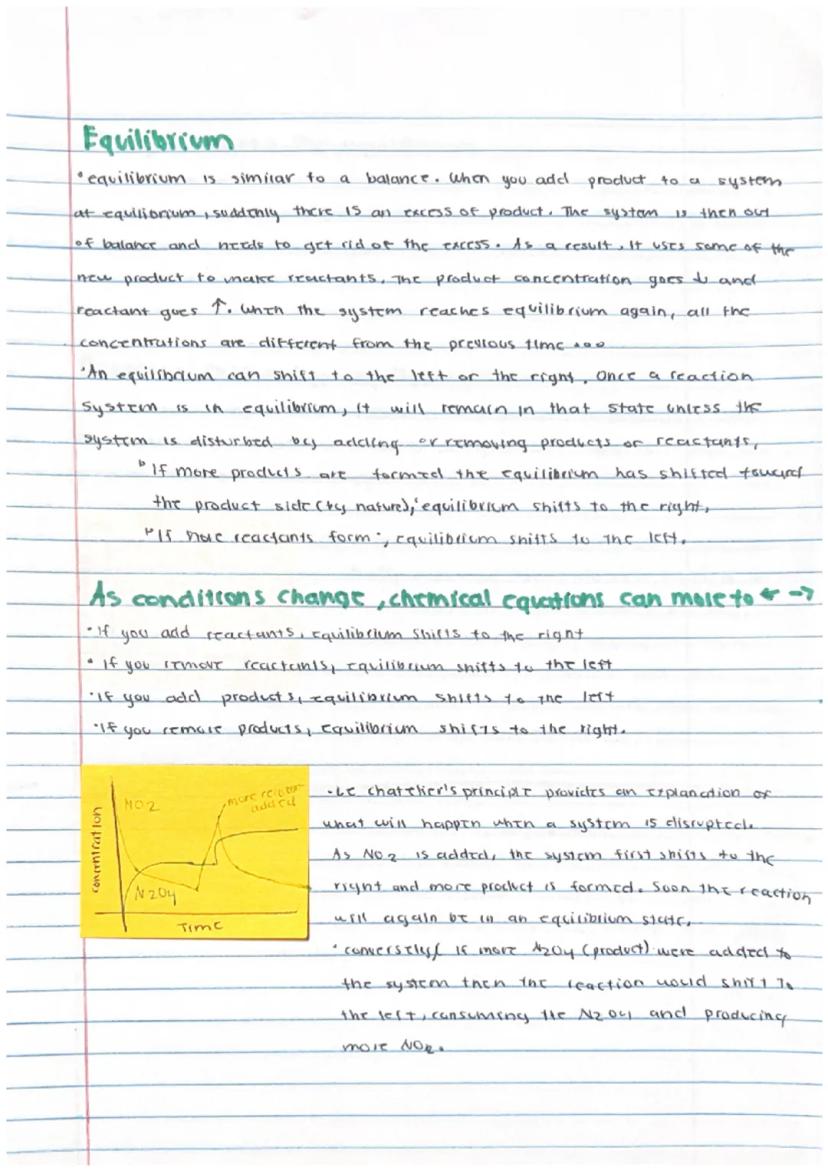 Equilibrium
• equilibrium is similar to a balance. When you add product to a system
at equilibrium, suddenly there is an excess of product. The system is then out
of balance and needs to get rid of the excess. As a result, it uses some of the
new product to make reactants. The product concentration goes ↓ and
reactant goes ↑. When the system reaches equilibrium again, all the
concentrations are different from the previous time ...
• An equilibrium can shift to the left or the right. Once a reaction
system is in equilibrium, it will remain in that state unless the
system is disturbed by adding or removing products or reactants,
If more products are formed the equilibrium has shifted toward
the product side (by nature), equilibrium shifts to the right.
If more reactants form, equilibrium shifts to the left.
As conditions change, chemical equations can move to ← →
• If you add reactants, equilibrium shifts to the right
• If you remove reactants, equilibrium shifts to the left
• If you add products, equilibrium shifts to the left
• If you remove products, equilibrium shifts to the right.
concentration
NO2
more
added
N2O4
Time
• Le chatelier's principle provides an explanation of
what will happen when a system is disrupted.
As NO2 is added, the system first shifts to the
right and more product is formed. Soon the reaction
will again be in an equilibrium state.
• conversely if more N2O4 (product) were added to
the system then the reaction would shift to
the left, consuming the N2O4 and producing
more NO2.